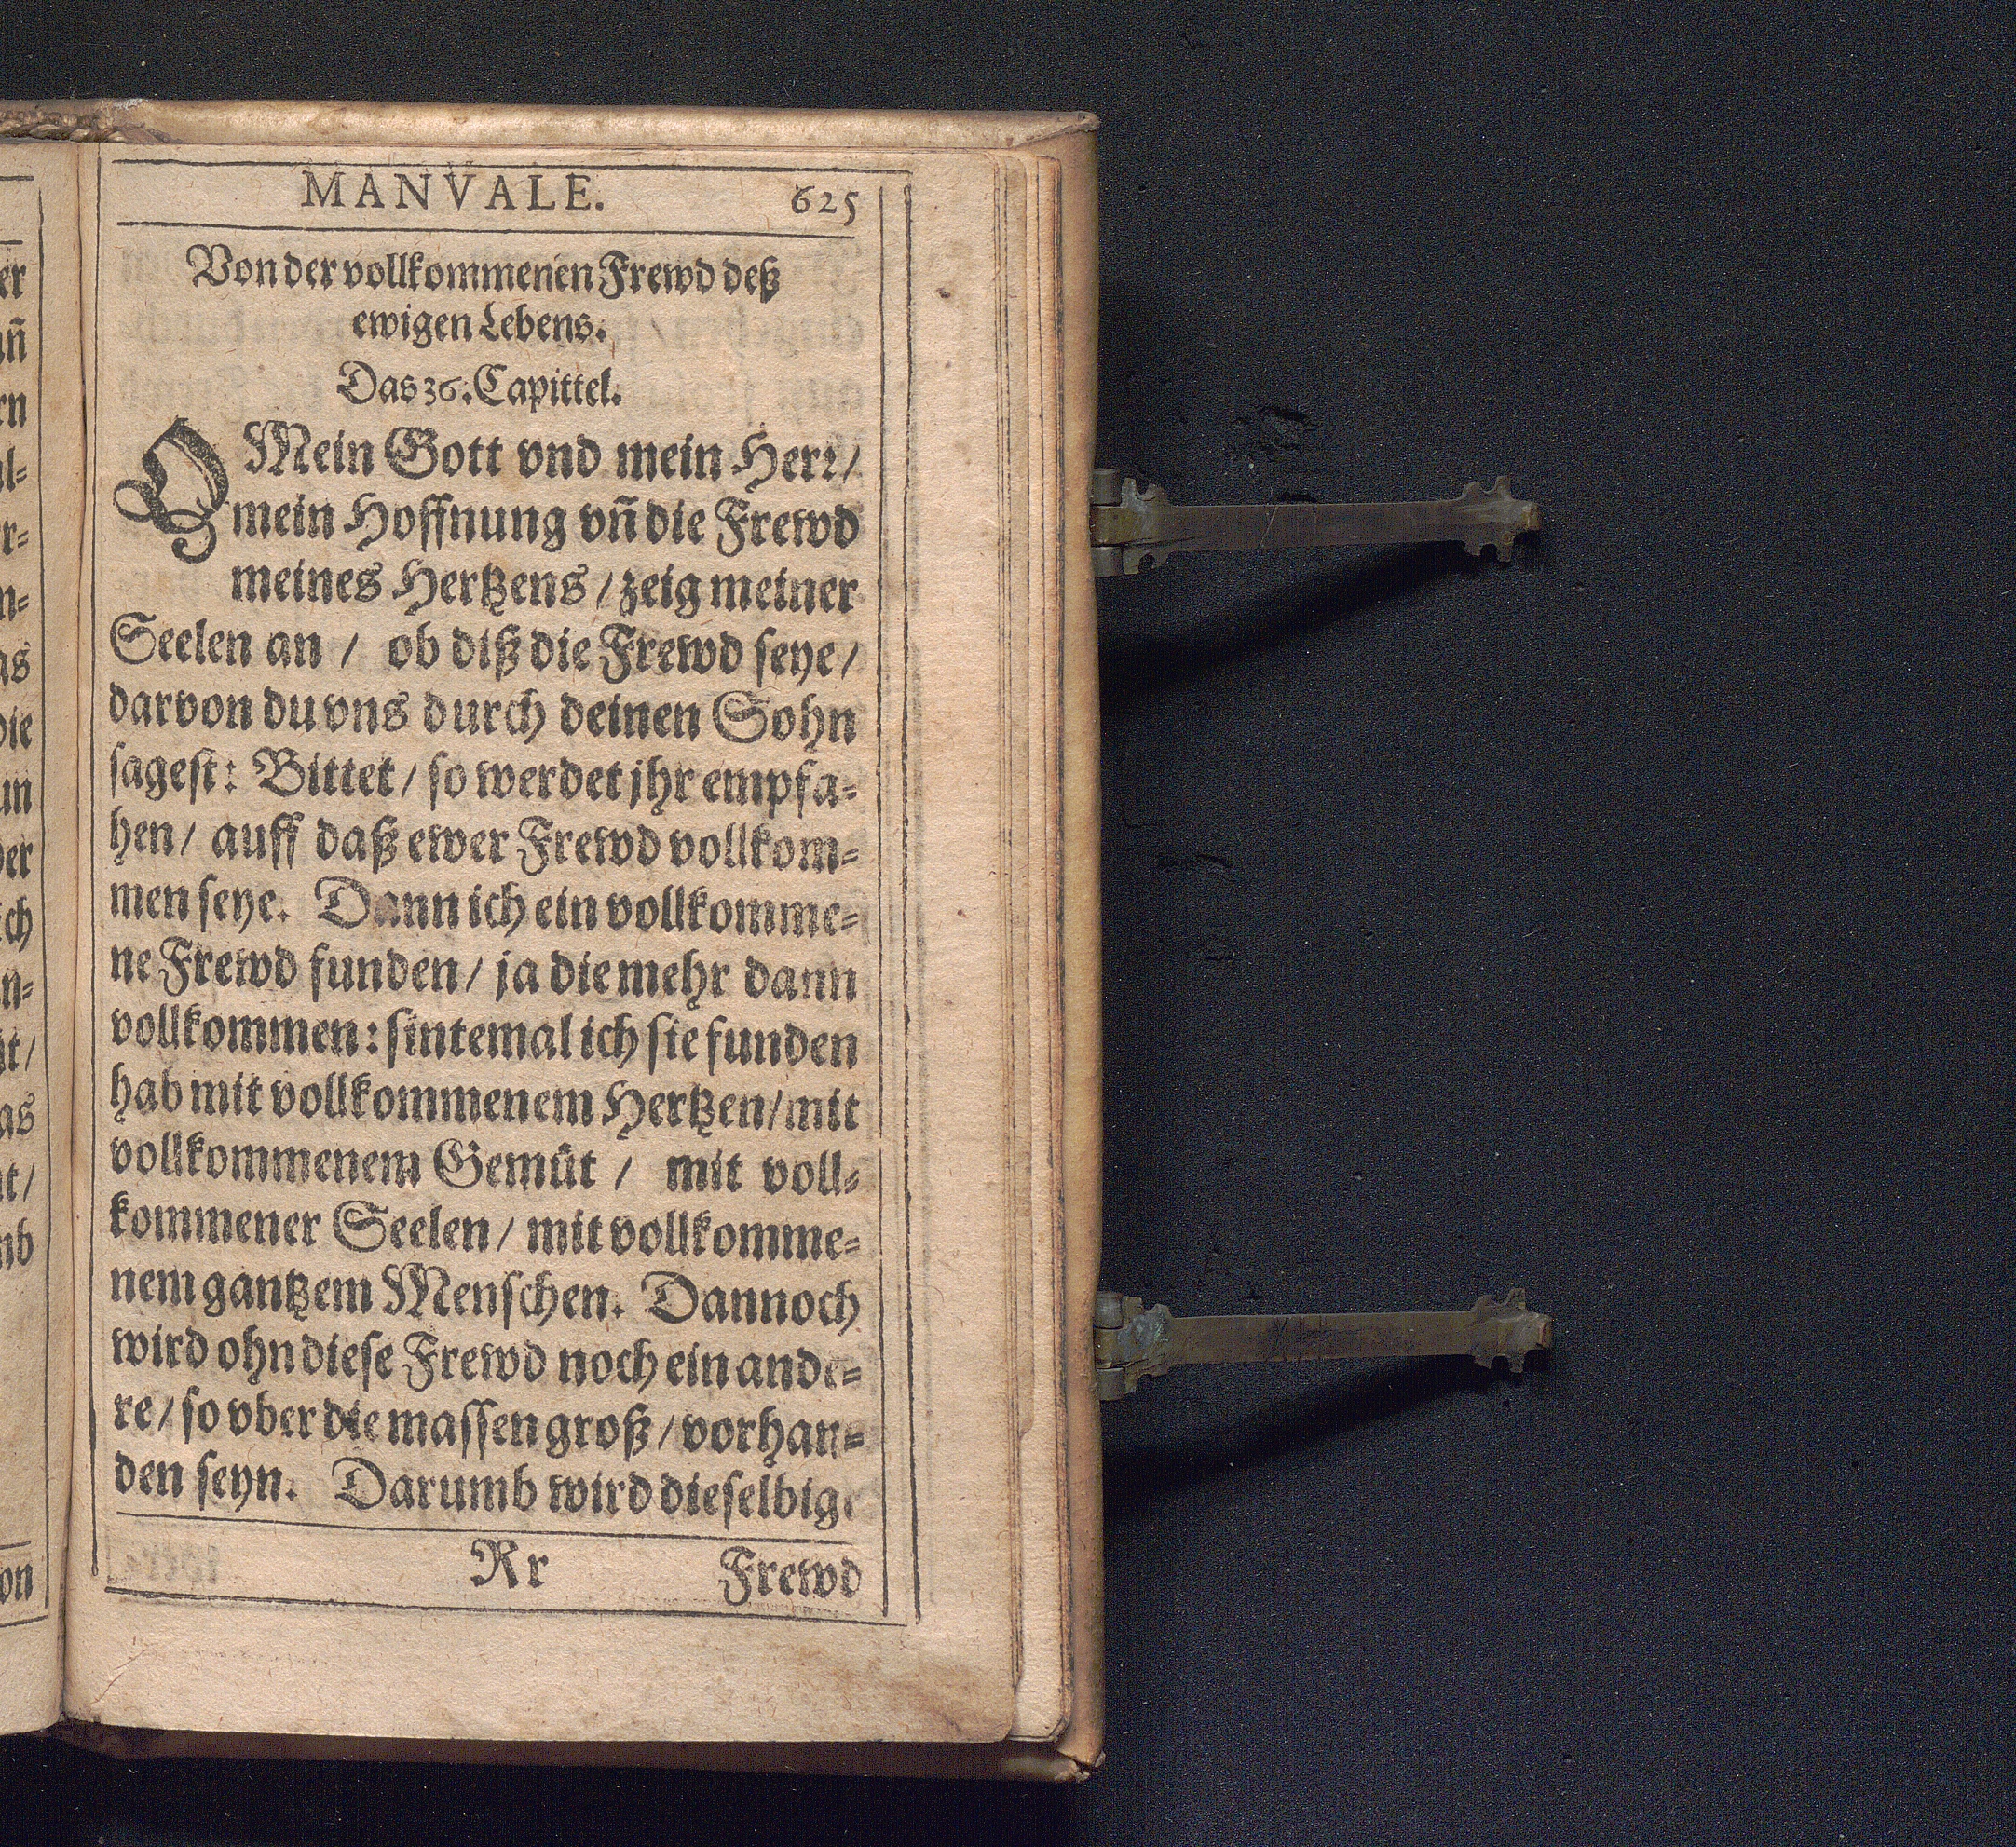 MANVALE. 625
Von der vollkommenen Frewd deß
ewigen Lebens.
Das 36. Capittel.
O Mein Gott vnd mein Herꝛ/
mein Hoffnung vn̄ die Frewd
meines Hertzens / zeig meiner
Seelen an / ob diß die Frewd seye/
darvon du vns durch deinen Sohn
sagest: Bittet/ so werdet jhr empfa-
hen/ auff daß ewer Frewd vollkom-
men seye. Dann ich ein vollkomme-
ne Frewd funden/ ja die mehr dann
vollkommen: sintemal ich sie funden
hab mit vollkommenem Hertzen/ mit
vollkommenem Gemüt / mit voll-
kommener Seelen/ mit vollkomme-
nem gantzem Menschen. Dannoch
wird ohn diese Frewd noch ein ande-
re/ so vber die massen groß/ vorhan-
den seyn. Darumb wird dieselbige
Rr Frewd